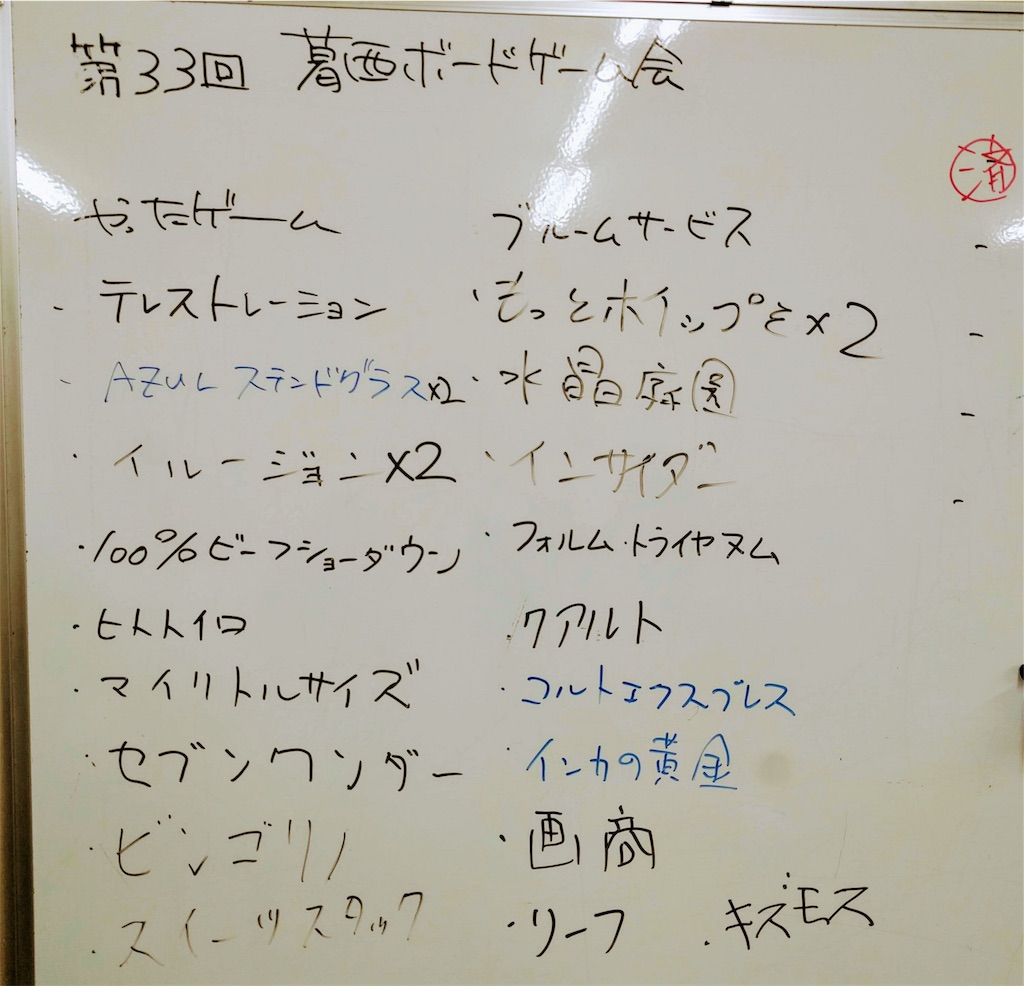 第33回 葛西ボードゲーム会
済
やったゲーム
・テレストレーション
・AZUL ステンドグラス×2
・イルージョン×2
・100%ビーフショーダウン
・ヒトトイロ
・マイリトルサイズ
・セブンワンダー
・ビンゴリノ
・スイーツスタック
ブルームサービス
・もっとホイップを×2
・水晶庭園
・インサイダー
・フォルム・トライヤヌム
・クアルト
・コルトエクスプレス
・インカの黄金
・画商
・リーフ
・キズモス